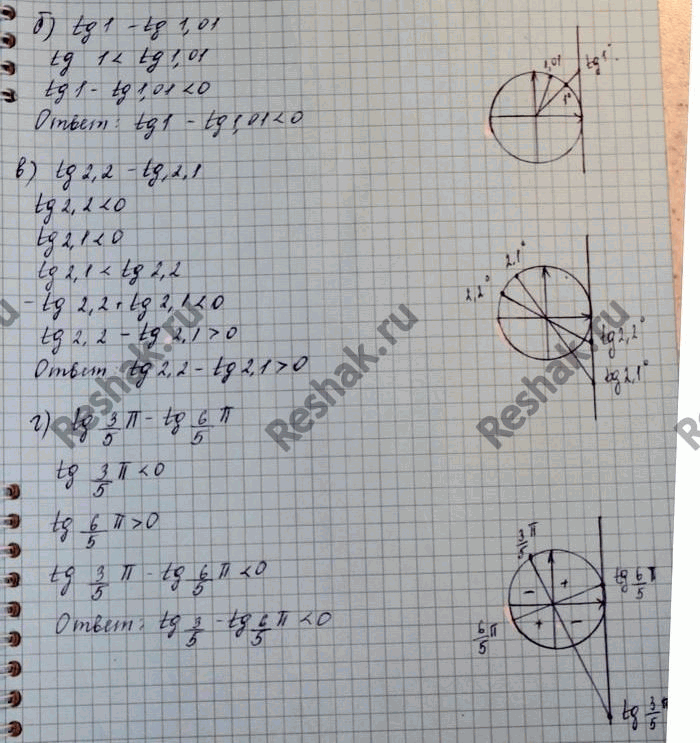 б) tg 1 - tg 1,01
tg 1 < tg 1,01
tg 1 - tg 1,01 < 0
Ответ: tg 1 - tg 1,01 < 0
1,01
tg 1°
1°
в) tg 2,2 - tg, 2,1
tg 2,2 < 0
tg 2,1 < 0
tg 2,1 < tg 2,2
- tg 2,2 + tg 2,1 < 0
tg 2,2 - tg 2,1 > 0
Ответ: tg 2,2 - tg 2,1 > 0
2,1°
2,2°
tg 2,2°
tg 2,1°
г) tg 3/5 π - tg 6/5 π
tg 3/5 π < 0
tg 6/5 π > 0
tg 3/5 π - tg 6/5 π < 0
Ответ: tg 3/5 - tg 6/5 π < 0
3/5 π
- +
+ -
tg 6/5 π
6/5 π
tg 3/5 π
Reshak.ru
Reshak.ru
Reshak.ru